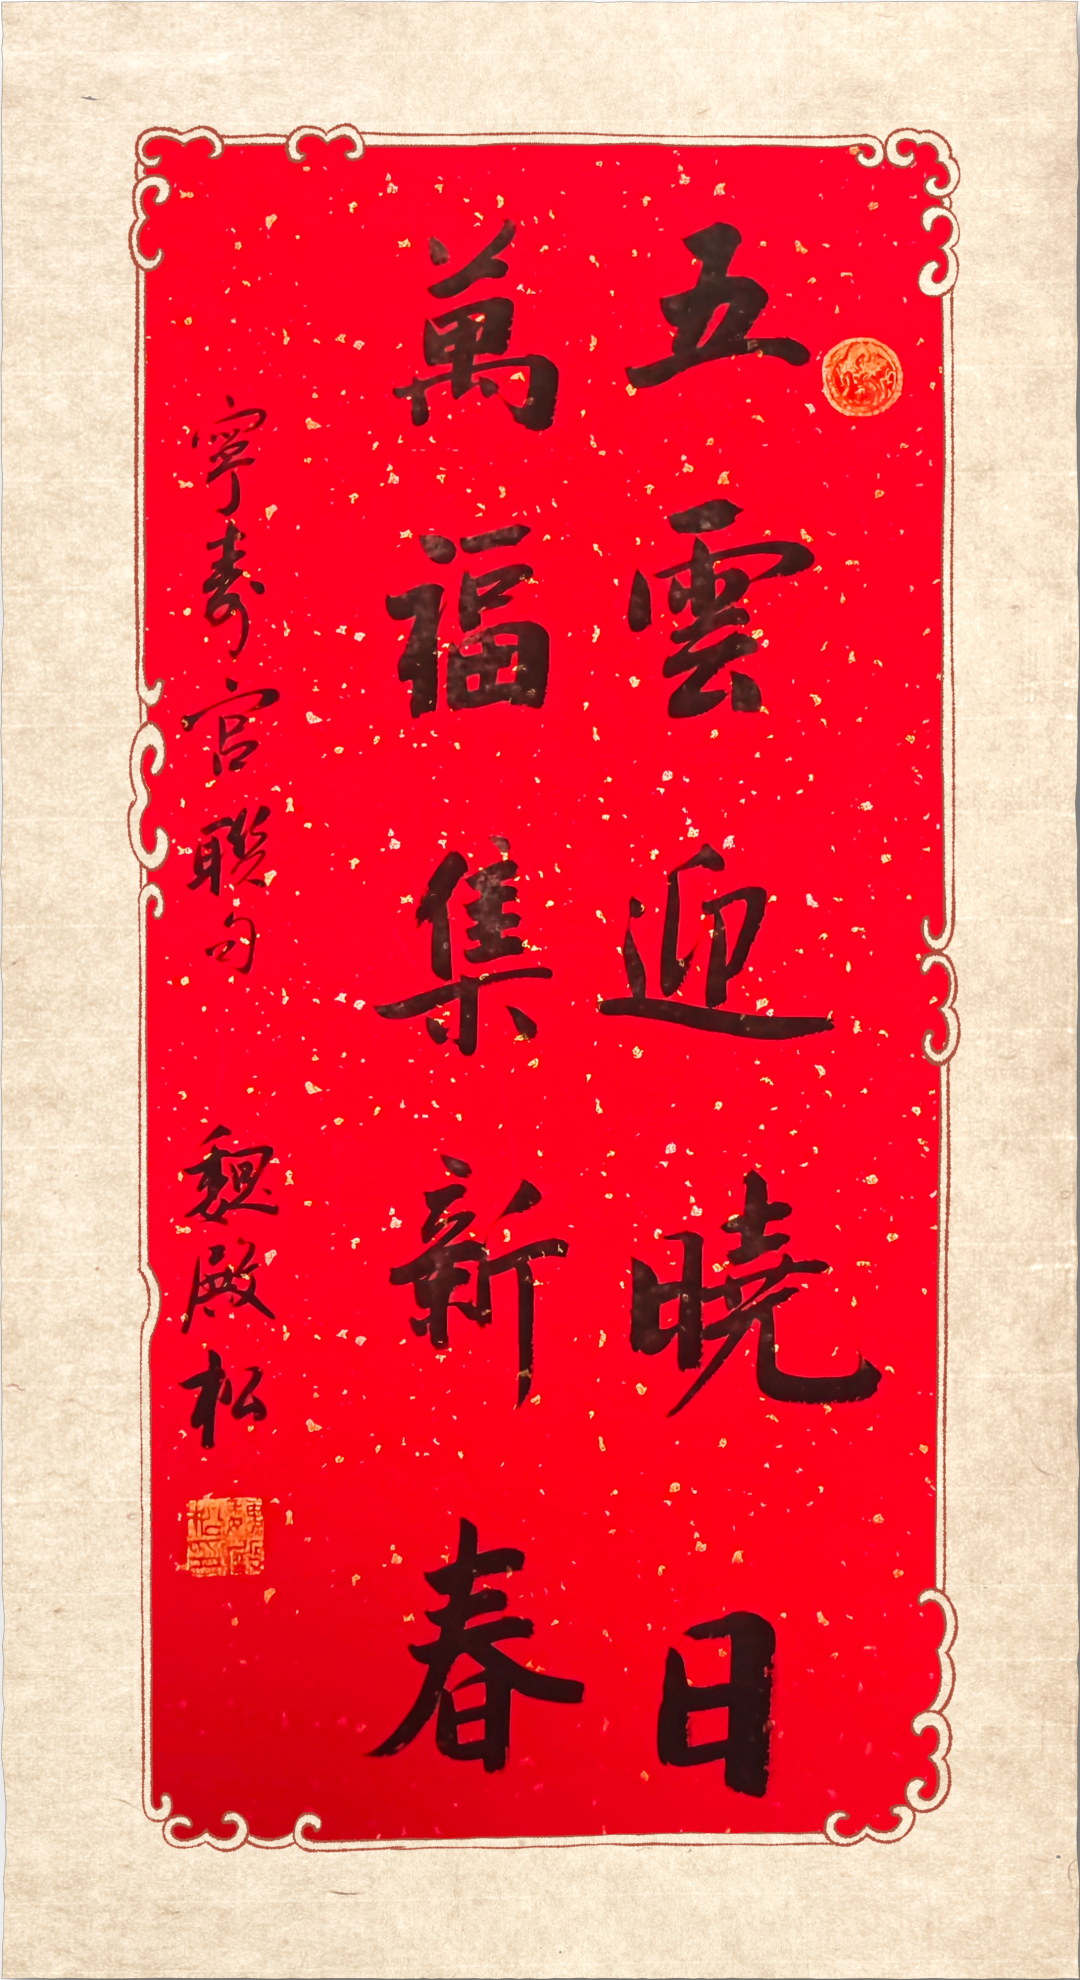 五雲迎曉日
萬福集新春
寧壽宮聯句
魏殿松